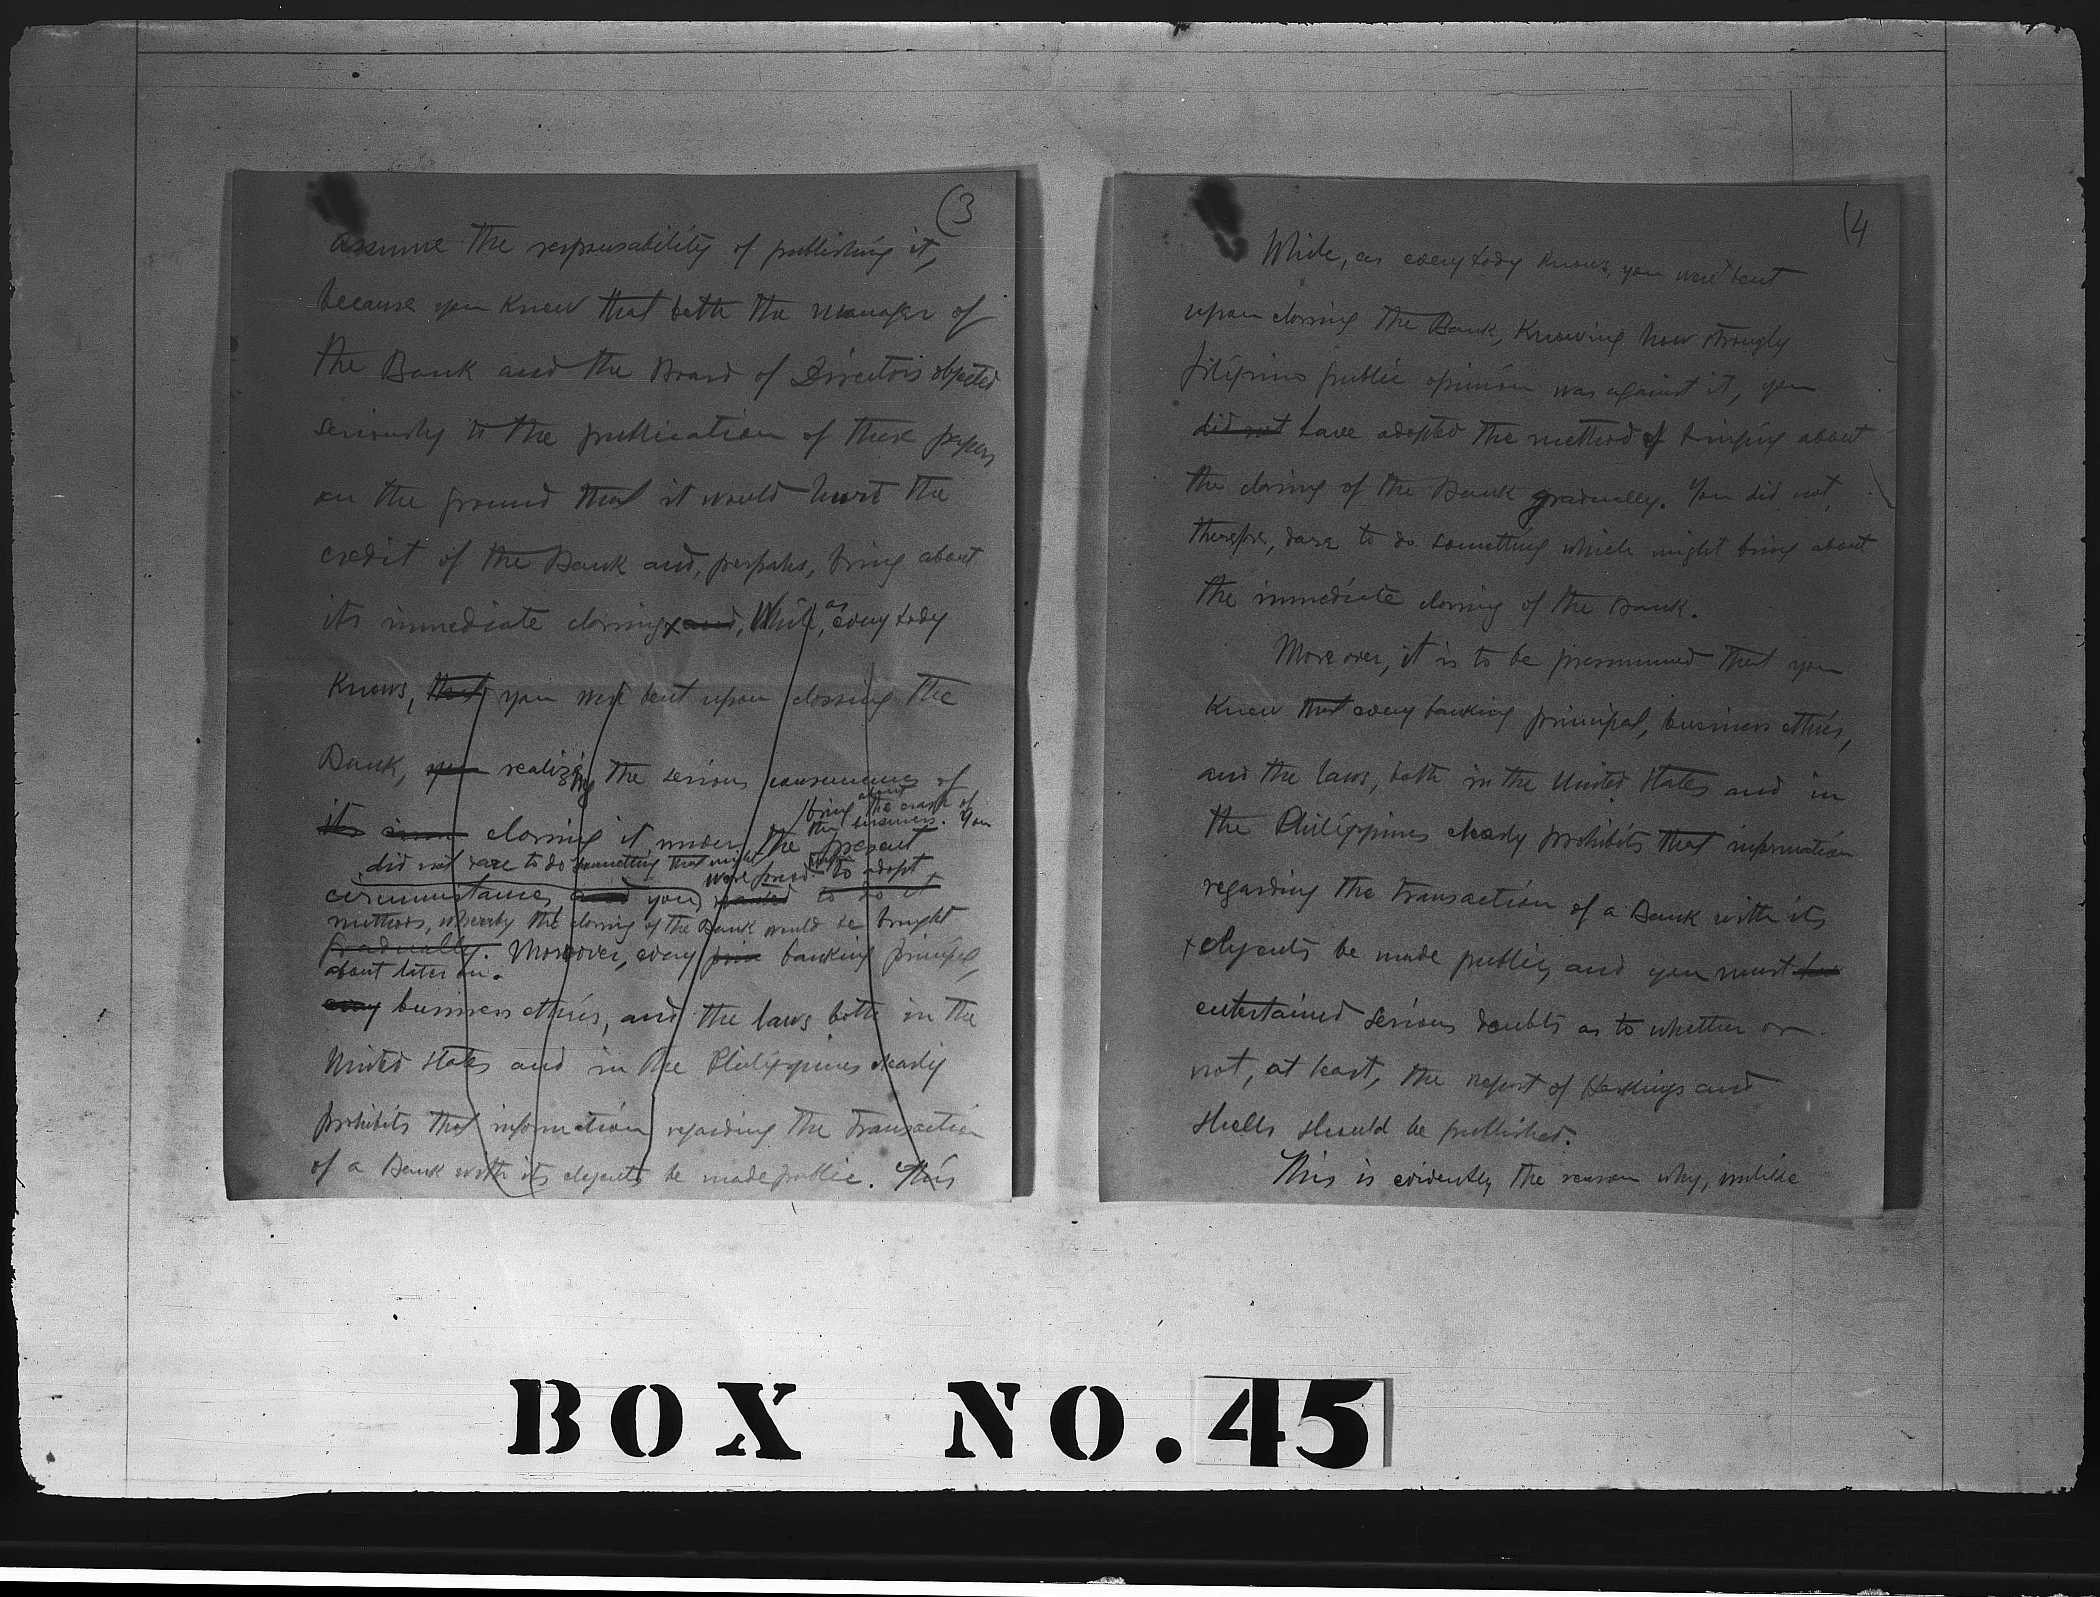 (3
assume the responsability of publishing it,
because you knew that both the manager of
the Bank and the Board of Directors objected
seriously to the publication of these papers
on the ground that it would hurt the
credit of the Bank and, perhaps, bring about
its immediate closing x and, While, as everybody
knows, that you were bent upon clossing the
Bank, you realizing the serious of
bring about the crash of
its closing it under the present
the business. You
did not dare to do something that might
were forced to adopt
circumstances and you wanted to do it
methods, whereby the closing of the Bank would be brought
gradually. Moreover, every prin banking principal,
about later on.
every business ethics, and the laws both in the
United States and in the Philippines clearly
prohibits that information regarding the transaction
of a Bank with its clyents be made public. This
(4
While, as everybody knows, you were bent
upon closing the Bank, knowing how strongly
filipino public opinion was against it, you
did not have adopted the method of bringing about
the closing of the Bank gradually. You did not,
therefore, dare to do something which might bring about
the immediate closing of the Bank.
Moreover, it is to be pressumed that you
knew that every banking principal, business ethics,
and the laws, both in the United States and in
the Philippines clearly prohibits that information
regarding the transaction of a Bank with its
x clyents be made public, and you must
entertained serious doubts as to whether or
not, at least, the report of Haskings and
Shells should be published.
This is evidently the reason why, unlike
BOX NO. 45